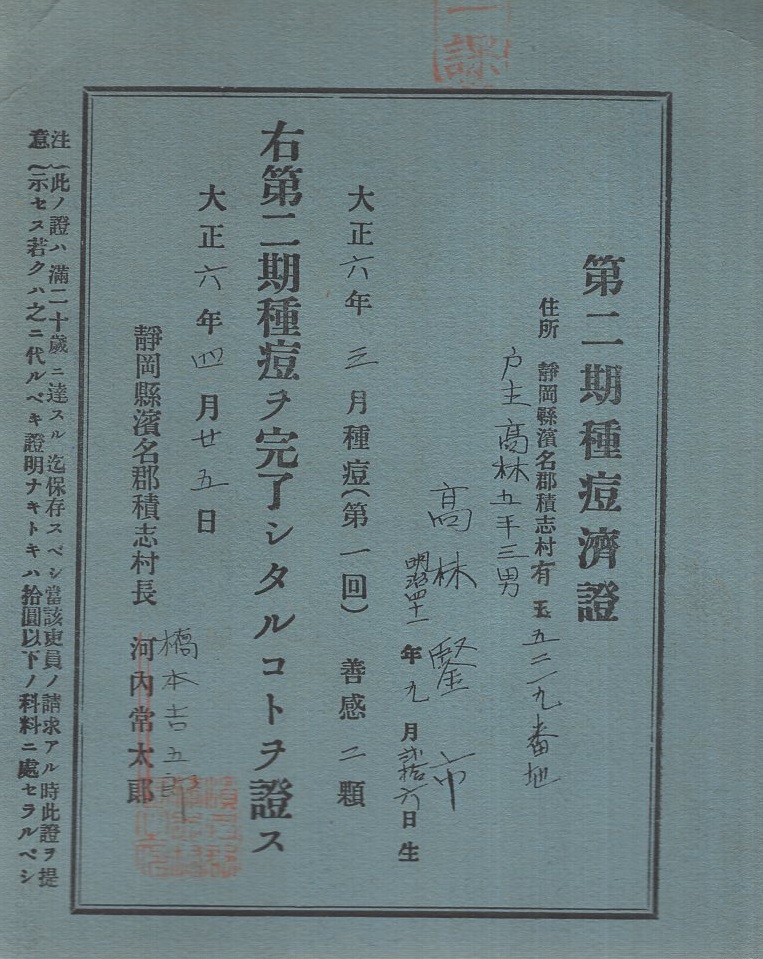 一課
第二期種痘濟證
住所 靜岡縣濱名郡積志村有玉五二一九番地
戸主高林五平三男
高林 市
明治四十一年九月貳拾六日生
大正六年三月種痘(第一回) 善感二顆
右第二期種痘ヲ完了シタルコトヲ證ス
大正六年四月廿五日
靜岡縣濱名郡積志村長 河內常太郎
橋本吉五郎
注意
此ノ證ハ滿二十歲ニ達スル迄保存スベシ當該吏員ノ請求アル時此證ヲ提
示セス若クハ之ニ代ルベキ證明ナキトキハ拾圓以下ノ科料ニ處セラルベシ